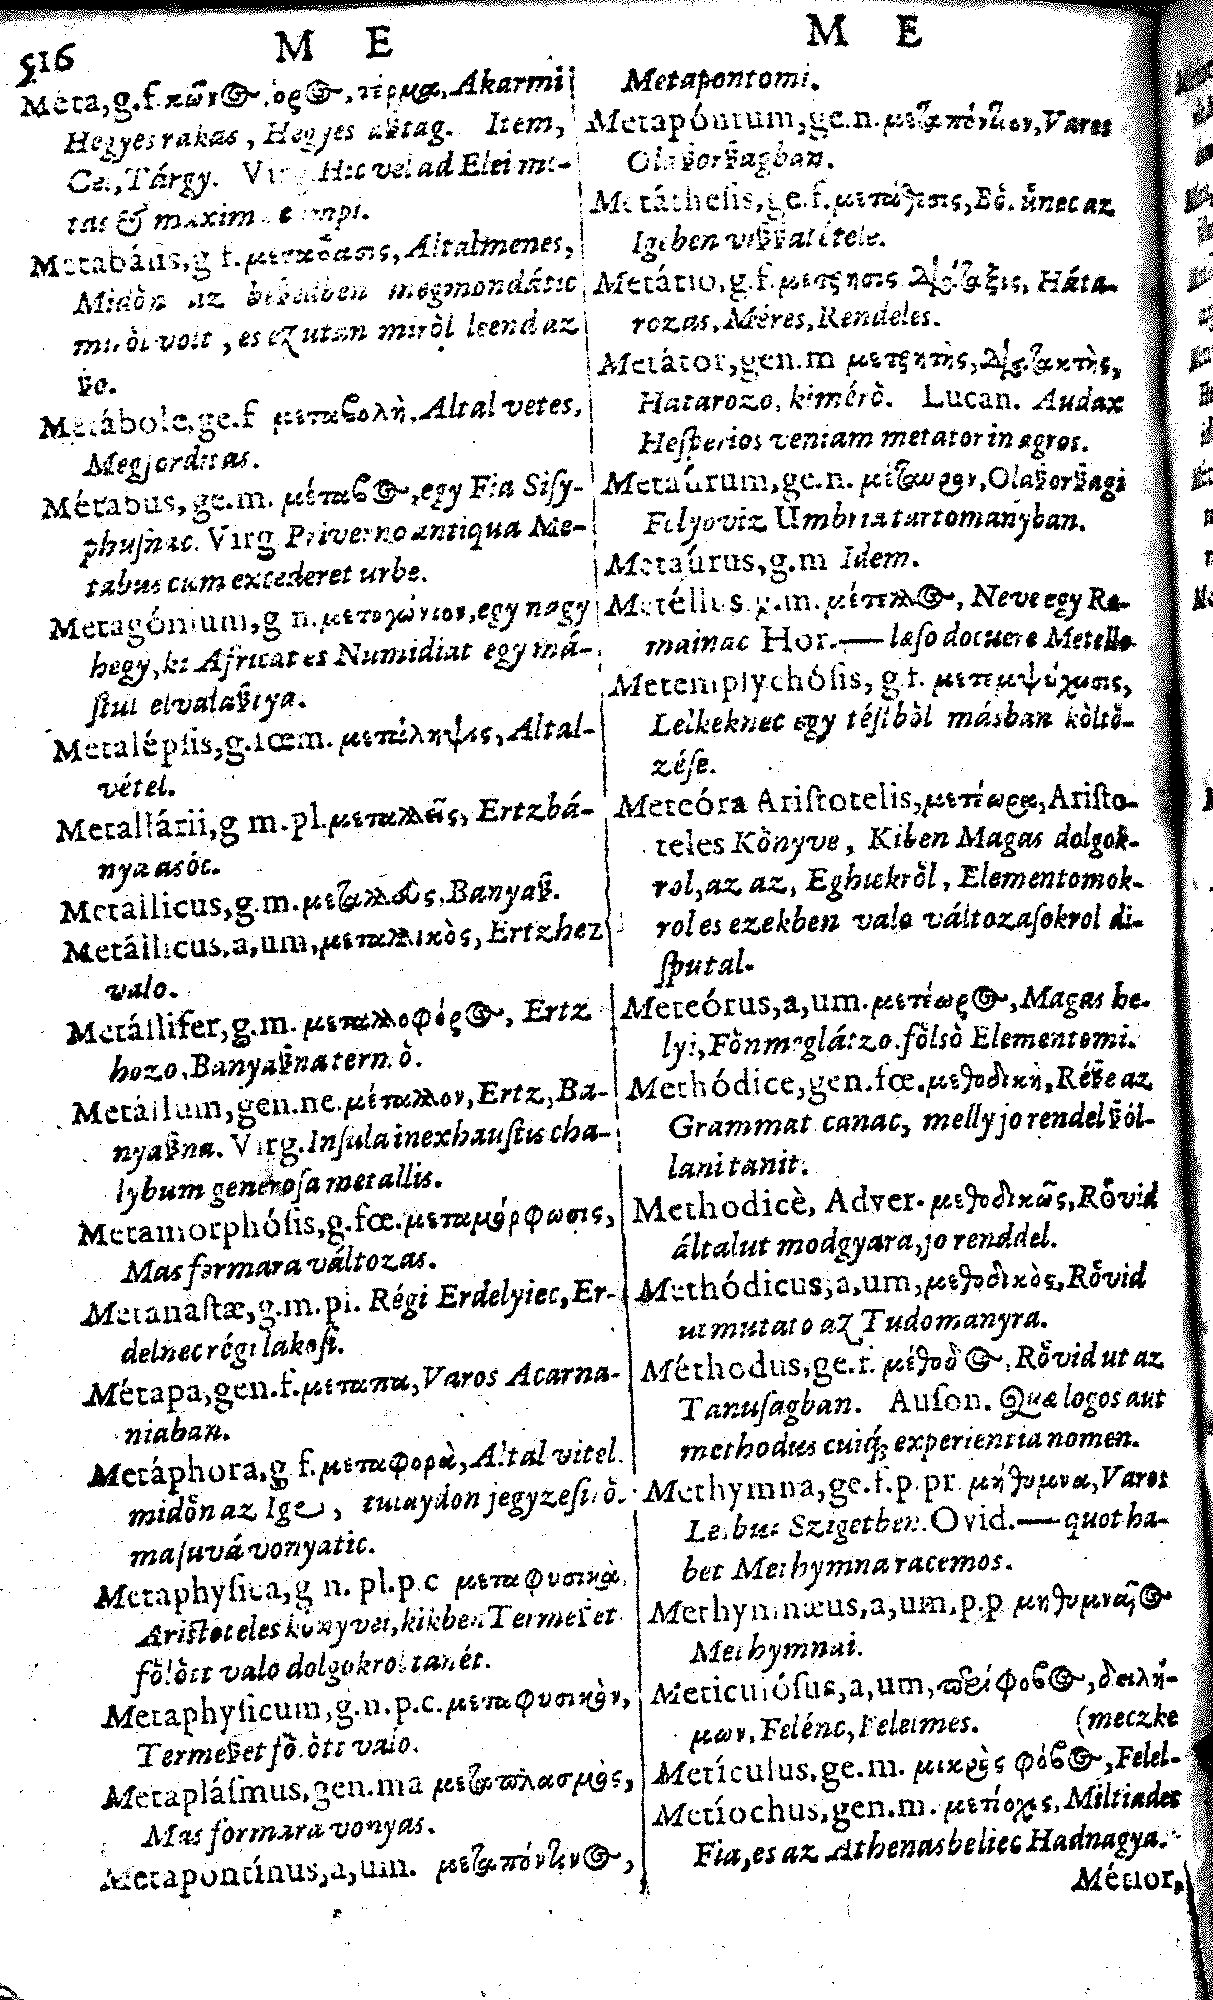 516
M E
Méta, g.f. κῶν⊙, ὁρ⊙, τέρμα, Akarmi
Hegyes rakas, Hegyes aßtag. Item,
Cel, Tárgy. Virg. Hic vel ad Elei me-
tas & maxim
Metabásis, g f. μετάβασις, Altalmenes,
Midön az beßedben megmondátic
miröl volt, es ezutan miröl leend az
ßo.
Metábole, ge.f μεταβολὴ, Altal vetes,
Megforditas.
Métabus, ge.m. μέταβ⊙, egy Fia Sisy-
phusnac. Virg Priverno antiqua Me-
tabus cum excederet urbe.
Metagónium, g n. μεταγώνιον, egy nagy
hegy, ki Africat es Numidiat egy má-
stul elvalaßtya.
Metalépsis, g.fœm. μετάληψις, Altal-
vétel.
Metallárii, g m. pl. μεταλλεῖς, Ertzbá-
nya asóc.
Metallicus, g.m. μεταλλεὺς, Banyaß.
Metállicus, a, um, μεταλλικὸς, Ertzhez
valo.
Metállifer, g.m. μεταλλοφόρ⊙, Ertz
hozo, Banyaßna termö.
Metállum, gen.ne. μέταλλον, Ertz, Ba-
nyaßna. Virg. Insula inexhaustus cha-
lybum generosa metallis.
Metamorphósis, g.fœ. μεταμόρφωσις,
Mas formara változas.
Metanastæ, g.m.pl. Régi Erdelyiec, Er-
delnec régi lakosi.
Métapa, gen.f. μεταπα, Varos Acarna-
niaban.
Metáphora, g f. μεταφορὰ, Altal vitel.
midön az Ige, tulaydon jegyzesiröl.
masuvá vonyatic.
Metaphysica, g n. pl.p.c μεταφυσικὰ,
Aristoteles könyvei, kikben Termeßet
fölött valo dolgokrol tanét.
Metaphysicum, g.n.p.c. μεταφυσικὸν,
Termeßet fölött valo.
Metaplásmus, gen.ma μεταπλασμὸς,
Mas formara vonyas.
Metapontínus, a, um. μεταπόντιν⊙,
M E
Metapontomi.
Metapóntum, ge.n. μεταπόντιον, Varos
Olaßorßagban.
Metáthesis, ge.f. μετάθεσις, Bö. tünec az
Igeben vißßatétele.
Metátio, g.f. μετρησις διάταξις, Háta-
rozas, Méres, Rendeles.
Metátor, gen.m μετρητὴς, διατακτὴς,
Hatarozo, kimérö. Lucan. Audax
Hesperios veniam metator in agros.
Metaúrum, ge.n. μέταυρον, Olaßorßagi
Folyoviz Umbria tartomanyban.
Metaúrus, g.m Idem.
Metéllus g.m. μέτελλ⊙, Neve egy Ro-
mainac Hor.— læso doluere Metello
Metempsychósis, g.f. μετεμψύχωσις,
Lelkeknec egy téstböl másban költö-
zése.
Meteóra Aristotelis, μετέωρα, Aristo-
teles Könyve, Kiben Magas dolgok-
rol, az az, Eghiekröl, Elementomok-
rol es ezekben valo változasokrol di-
sputal.
Meteórus, a, um. μετέωρ⊙, Magas he-
lyi, Fönmeglátzo. fölsö Elementomi.
Methódice, gen.fœ. μεθοδικὴ, Réße az
Grammat canac, melly jo rendel ßól-
lani tanit.
Methodicè, Adver. μεθοδικῶς, Rövid
általut modgyara, jo renddel.
Methódicus, a, um, μεθοδικὸς, Rövid
ut mutato az Tudomanyra.
Méthodus, ge.f. μέθοδ⊙, Rövid ut az
Tanusagban. Auson. Quæ logos aut
methodus cuiq; experientia nomen.
Methymna, ge.f.p.pr μήθυμνα, Varos
Lesbus Szigetben. Ovid.— quot ha-
bet Methymna racemos.
Methymnæus, a, um, p.p μηθυμναῖ⊙
Methymnai.
Meticulósus, a, um, περίφοβ⊙, δειλή-
μων, Felénc, Felelmes. (meczke
Metículus, ge.m. μικρὸς φόβ⊙, Felel-
Metíochus, gen.m. μετίοχος, Miltiades
Fia, es az Athenasbeliec Hadnagya.
Métior,